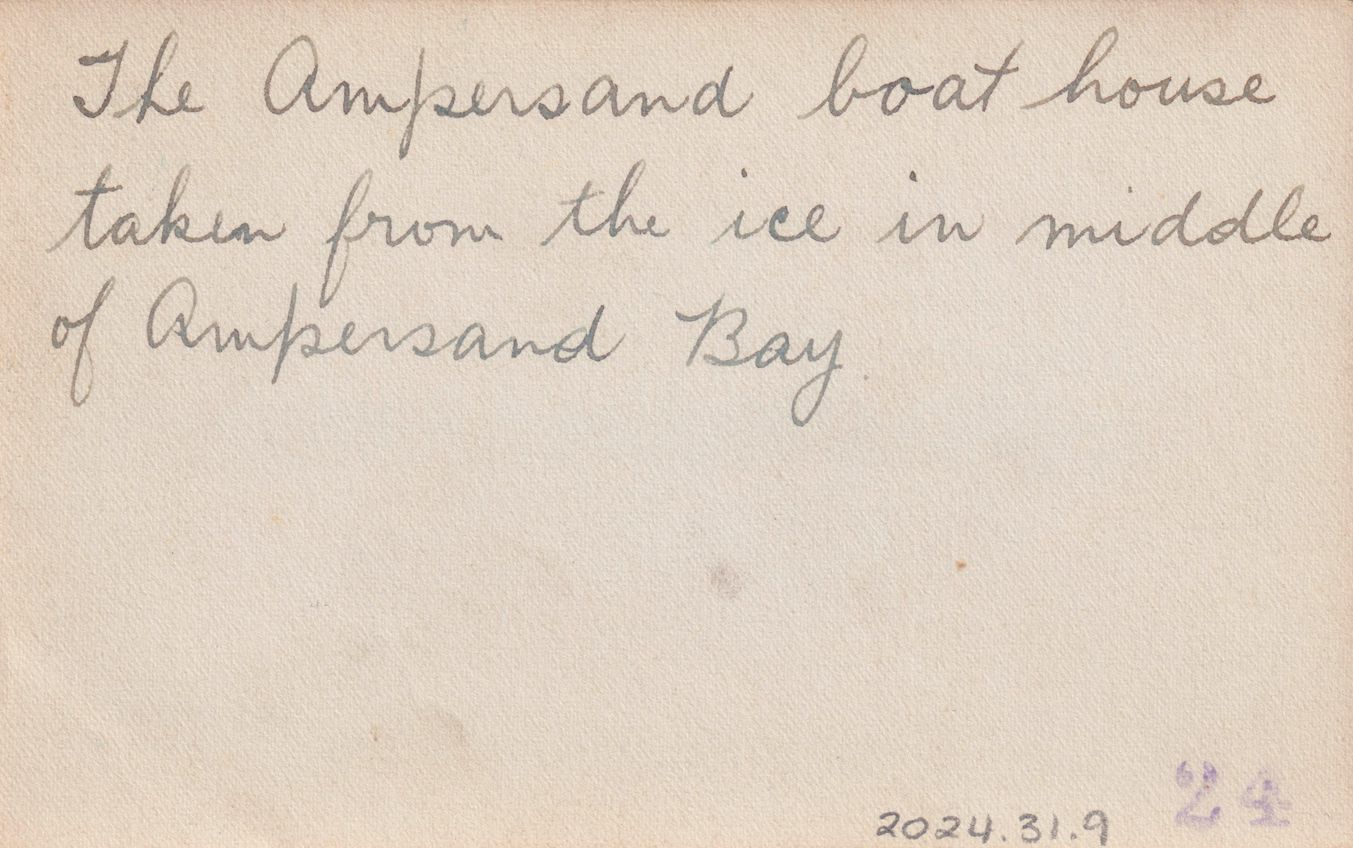 The Ampersand boat house
taken from the ice in middle
of Ampersand Bay.
2024.31.9 24